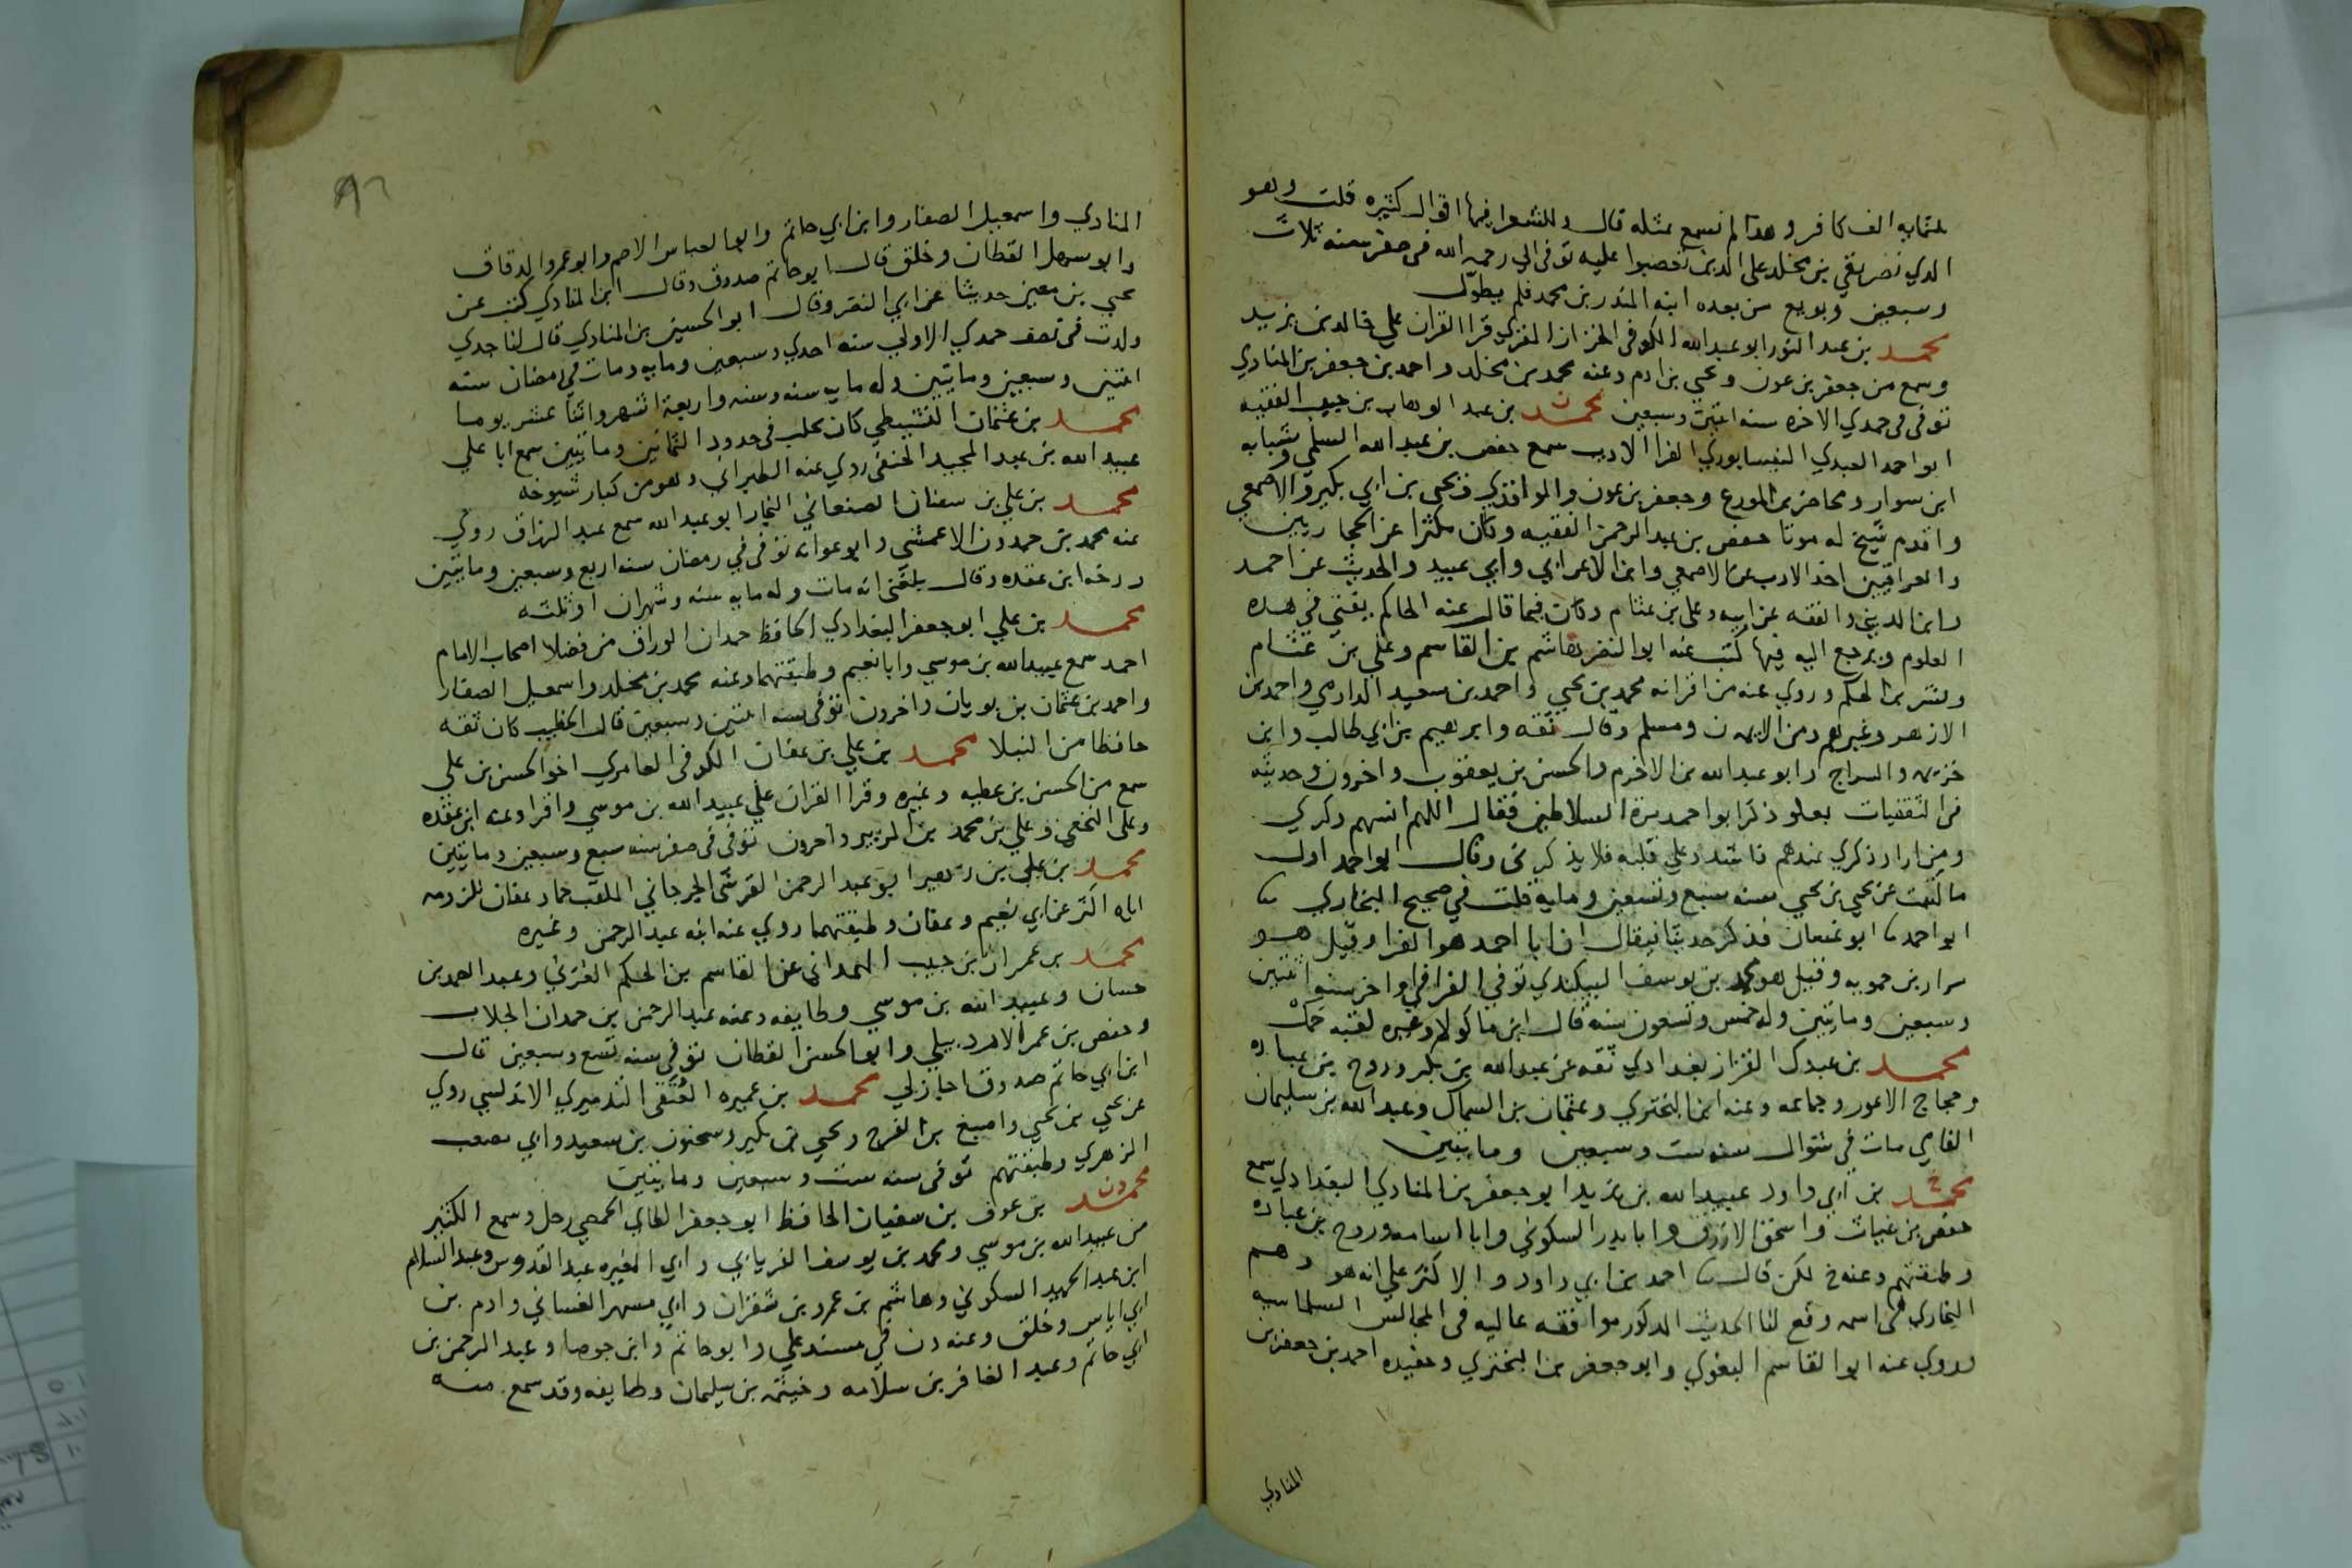 ثلثمايه الف كافر وهذا لم نسمع بمثله قال وللشعرا فيها اقوال كثيره قلت وهو
الذي نصر بقي بن مخلد على الذين تعصبوا عليه توفى الى رحمه الله في صفر سنه ثلاث
وسبعين وبويع من بعده ابنه المنذر بن محمد فلم يطوّل
محمد بن عبد النور ابو عبدالله الكوفى الخزاز المقري قرا القران على خالد بن يزيد
وسمع من جعفر بن عون و يحيي بن ادم وعنه محمد بن مخلد واحمد بن جعفر بن المنادي
توفى فى جمدي الاخره سنه اثنين وسبعين محمد بن عبد الوهاب بن حبيب الفقيه
ابو احمد العبدي النيسابوري الفرا الاديب سمع حفص بن عبد الله السلمي وشبابه
ابن سوار ومحاضر بن المورع وجعفر بن عون والواقدي ويحيى بن ابي بكير والاصمعي
واقدم شيخ له موتا حفص بن عبد الرحمن الفقيه وكان مكثرا عن الحجازيين
والعراقيين اخذ الادب عن الاصمعي وابن الاعرابي وابي عبيد والحديث عن احمد
وابن المديني والفقه عن ابيه وعلى بن عثام وكان فيما قال عنه الحاكم يفتي في هذه
العلوم ويرجع اليه فيها كتب عنه ابو النضر هاشم بن القاسم وعلي بن عثام
وبشر بن الحكم وروي عنه من اقرانه محمد بن يحيي واحمد بن سعيد الدارمي واحمد بن
الازهر وغيرهم ومن الايمه ن ومسلم وقال ثقه وابرهيم بن ابي طالب وابن
خزيمه والسراج وابو عبد الله بن الاخرم والحسن بن يعقوب واخرون وحديثه
في الثقفيات بعلو ذكر ابو احمد مرة السلاطين فقال اللهم انسهم ذكري
ومن اراد ذكري عندهم فاشدد على قلبه فلا يذكرني وقال ابو احمد اول
ما كتبت عن يحيي بن يحيي سنه سبع وتسعين ومايه قلت في صحيح البخاري ثنا
ابو احمد ثنا ابو غسان فذكر حديثا فيقال ان ابا احمد هو الفرا وقيل هو
مرار بن حمويه وقيل هو محمد بن يوسف البيكندي توفي الفرا في اواخر سنه اثنين
وسبعين ومايتين وله خمس وتسعون سنه قال ابن ماكولا وغيره لقبه حمك
محمد بن عبدك القزاز بغدادي ثقه عن عبد الله بن بكر وروح بن عباده
وحجاج الاعور وجماعه وعنه ابن البختري وعثمان بن السماك وعبد الله بن سليمان
الفامي مات في شوال سنه ست وسبعين ومايتين
محمد بن ابي داود عبيد الله بن يزيد ابو جعفر بن المنادي البغدادي سمع
حفص بن غياث واسحق الازرق وابا بدر السكوني وابا اسامه وروح بن عباده
وطبقتهم وعنه خ لكن قال ثنا احمد بن ابي داود والاكثر على انه هو وهم
البخاري في اسمه وقع لنا الحديث المذكور موافقه عاليه في المجالس السلماسيه
وروي عنه ابو القاسم البغوي وابو جعفر بن البختري وحفيده احمد بن جعفر بن
المنادي
المنادي واسمعيل الصفار وابن ابي حاتم وابو العباس الاصم وابو عمرو الدقاق
وابو سهل القطان وخلق قال ابو حاتم صدوق وقال ابن المنادي كتب عن
يحيي بن معين حديثا عن ابي النضر وقال ابو الحسين بن المنادي قال لنا جدي
ولدت فى نصف جمدي الاولي سنه احدي وسبعين ومايه ومات في رمضان سنه
اثنتين وسبعين ومايتين وله مايه سنه وسنه واربعة اشهر واثنا عشر يوما
محمد بن عثمان النشيطي كان بحلب فى حدود الثمانين ومايتين سمع ابا علي
عبيد الله بن عبد المجيد الحنفي روي عنه الطبراني وهو من كبار شيوخه
محمد بن علي بن سفيان الصنعاني النجار ابو عبد الله سمع عبد الرزاق روي
عنه محمد بن حمدون الاعمشي وابو عوانه توفى في رمضان سنه اربع وسبعين ومايتين
ورخه ابن عقده وقال بلغني انه مات وله مايه سنه وشهران او ثلثه
محمد بن علي ابو جعفر البغدادي الحافظ حمدان الوراق من فضلا اصحاب الامام
احمد سمع عبيد الله بن موسي وابا نعيم وطبقتهما وعنه محمد بن مخلد واسمعيل الصفار
واحمد بن عثمان بن بويان واخرون توفى سنه اثنتين وسبعين قال الخطيب كان ثقه
حافظا من النبلا محمد بن علي بن عفان الكوفى العامري اخو الحسن بن علي
سمع من الحسن بن عطيه وغيره وقرا القران علي عبيد الله بن موسي واقرا وعنه ابن عقده
وعلي النخعي وعلي بن محمد بن الزبير واخرون توفى في صفر سنه سبع وسبعين ومايتين
محمد بن علي بن زهير ابو عبد الرحمن القرشي الجرجاني الملقب حمار عفان للزومه
اياه اكثر عن ابي نعيم وعفان وطبقتهما روي عنه ابنه عبد الرحمن وغيره
محمد بن عمران بن حبيب الهمداني عن القاسم بن الحكم العرني وعبد الصمد بن
حسان وعبيد الله بن موسي وطايفه وعنه عبد الرحمن بن حمدان الجلاب
وحفص بن عمر الاردبيلي وابو الحسن القطان توفى سنه تسع وسبعين قال
ابن ابي حاتم صدوق اجاز لي محمد بن عميره العتقي التدميري الاندلسي روي
عن يحيي بن يحيي واصبغ بن الفرج ويحيي بن بكير وسحنون بن سعيد وابي مصعب
الزهري وطبقتهم توفى سنه ست وسبعين ومايتين
محمد دن بن عوف بن سفيان الحافظ ابو جعفر الطايي الحمصي رحل وسمع الكثير
من عبيد الله بن موسي ومحمد بن يوسف الفريابي وابي المغيره عبد القدوس وعبد السلام
ابن عبد الحميد السكوني وهاشم بن عمرو بن شفران وابي مسهر الغساني وادم بن
ابي اياس وخلق وعنه دن في مسند علي وابو حاتم وابن جوصا وعبد الرحمن بن
ابي حاتم وعبد الغافر بن سلامه وخيثمه بن سليمان وطايفه وقد سمع منه